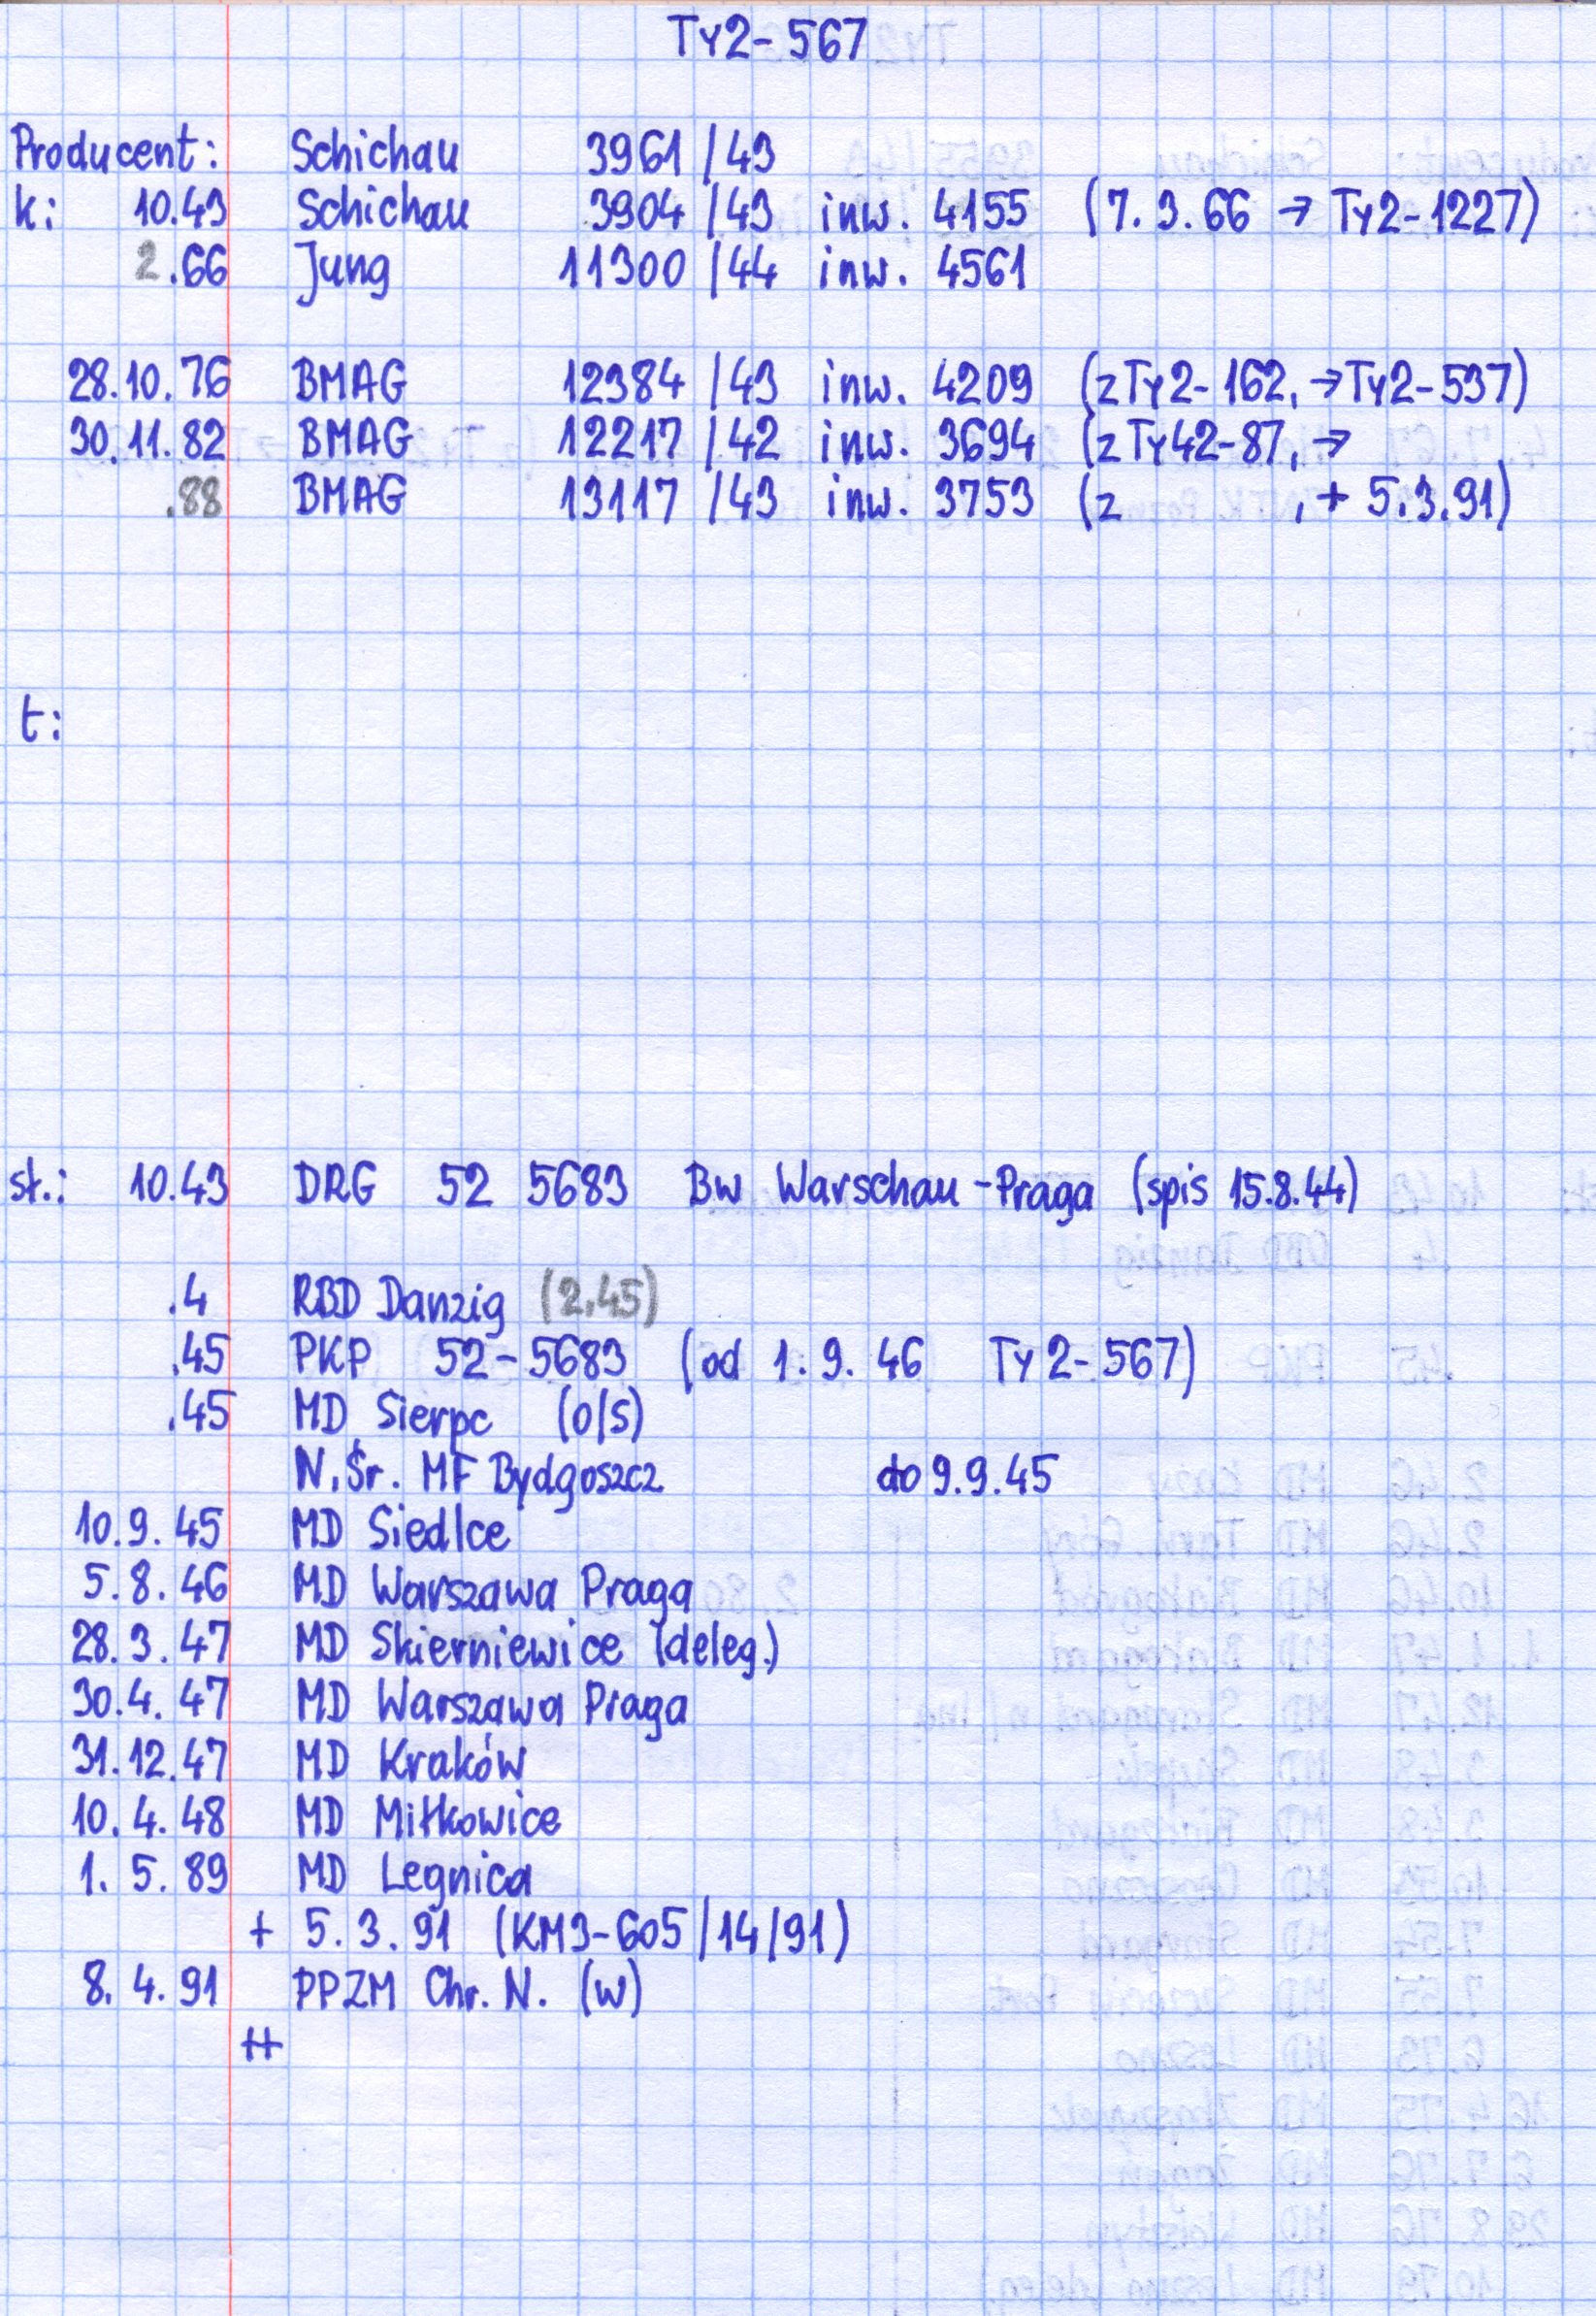 Ty2-567
Producent: Schichau 3961/43
k: 10.43 Schichau 3904/43 inw. 4155 (7.3.66 → Ty2-1227)
2.66 Jung 11300/44 inw. 4561
28.10.76 BMAG 12384/43 inw. 4209 (z Ty2-162, → Ty2-537)
30.11.82 BMAG 12217/42 inw. 3694 (z Ty42-87, →
.88 BMAG 13117/43 inw. 3753 (z , + 5.3.91)
t:
st.: 10.43 DRG 52 5683 Bw Warschau-Praga (spis 15.8.44)
.4 RBD Danzig (2.45)
.45 PKP 52-5683 (od 1.9.46 Ty2-567)
.45 MD Sierpc (O/S)
N.Śr. MF Bydgoszcz do 9.9.45
10.9.45 MD Siedlce
5.8.46 MD Warszawa Praga
28.3.47 MD Skierniewice (deleg.)
30.4.47 MD Warszawa Praga
31.12.47 MD Kraków
10.4.48 MD Miłkowice
1.5.89 MD Legnica
+ 5.3.91 (KM3-605/14/91)
8.4.91 PPZM Chr. N. (w)
++